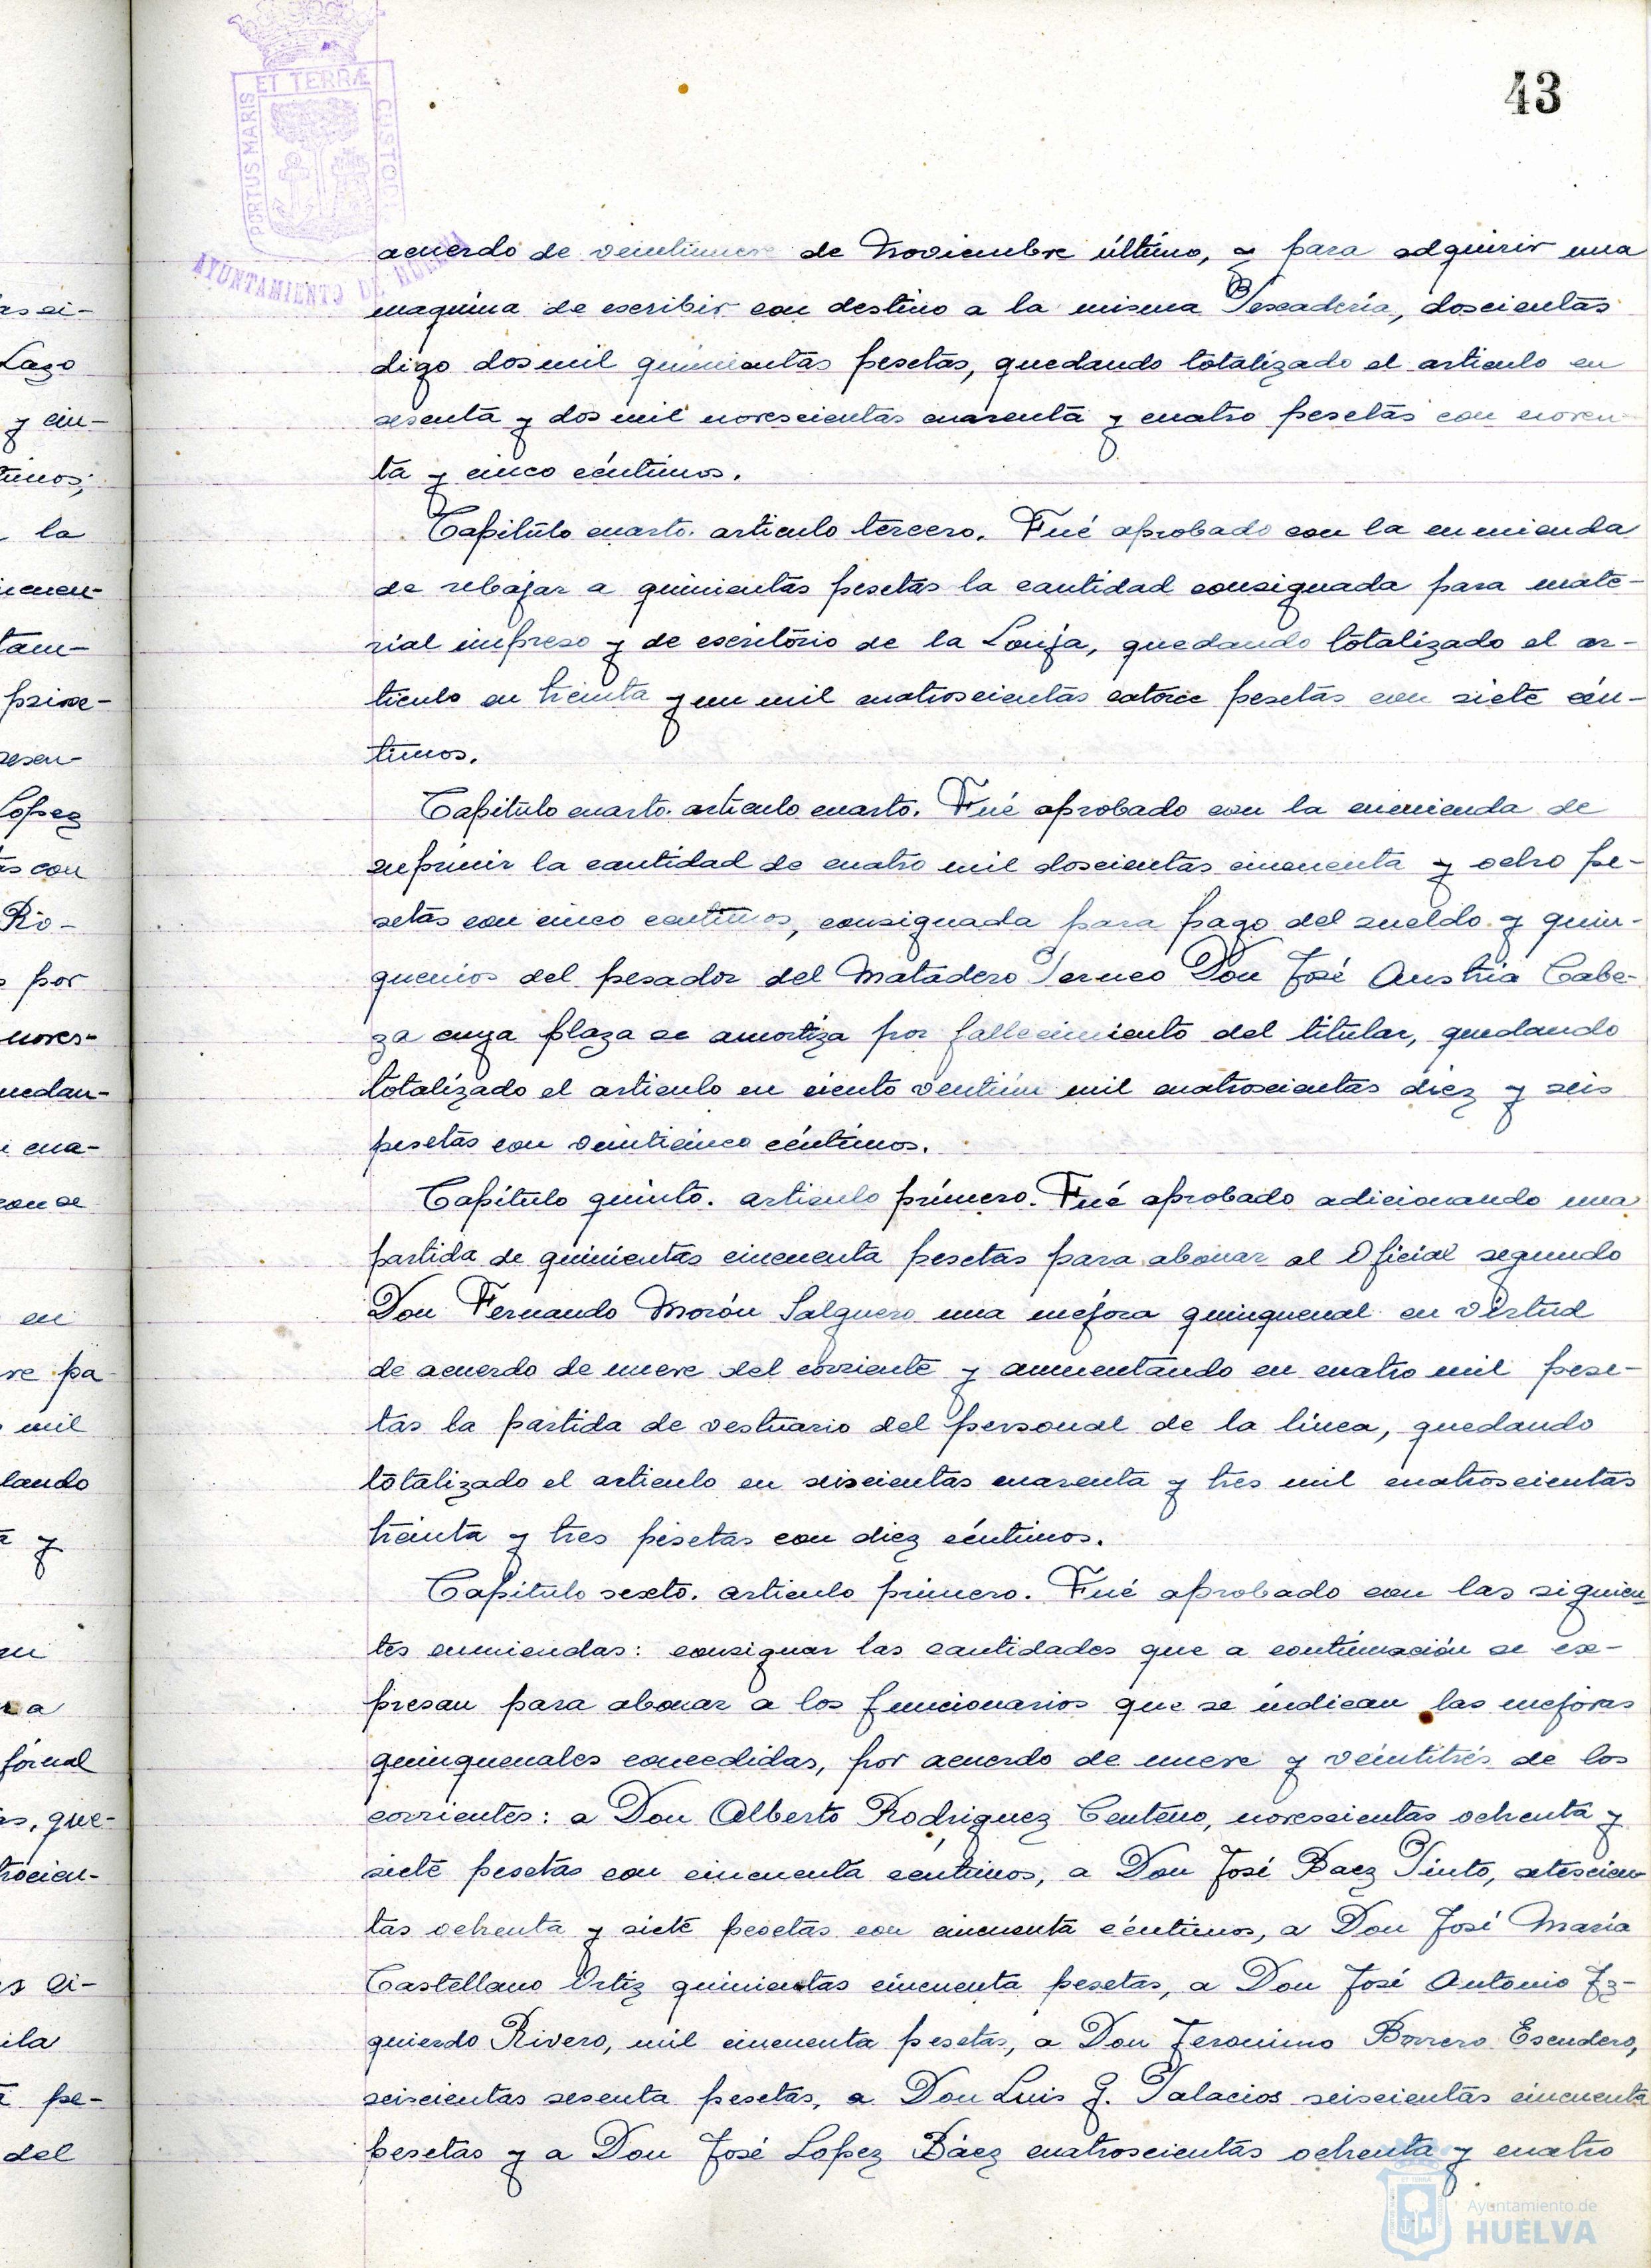 43
PORTUS MARIS ET TERRÆ CUSTODIA
AYUNTAMIENTO DE HUELVA
acuerdo de veintinueve de Noviembre último, y para adquirir una
maquina de escribir con destino a la misma Pescadería, doscientas
digo dos mil quinientas pesetas, quedando totalizado el articulo en
sesenta y dos mil novescientas cuarenta y cuatro pesetas con noven
ta y cinco céntimos.
Capitulo cuarto. articulo tercero. Fué aprobado con la enmienda
de rebajar a quinientas pesetas la cantidad consignada para mate-
rial impreso y de escritorio de la Lonja, quedando totalizado el ar-
ticulo en treinta y un mil cuatroscientas catorce pesetas con siete cén-
timos.
Capitulo cuarto. articulo cuarto. Fué aprobado con la enmienda de
suprimir la cantidad de cuatro mil doscientas cincuenta y ocho pe-
setas con cinco centimos, consignada para pago del sueldo y quin-
quenios del pesador del Matadero Porneo Don José Austria Cabe-
za cuya plaza se amortiza por fallecimiento del titular, quedando
totalizado el articulo en ciento ventiún mil cuatroscientas diez y seis
pesetas con veinticinco céntimos.
Capítulo quinto. articulo primero. Fué aprobado adicionando una
partida de quinientas cincuenta pesetas para abonar al Oficial segundo
Don Fernando Morón Salguero una mejora quinquenal en virtud
de acuerdo de nueve del corriente y aumentando en cuatro mil pese-
tas la partida de vestuario del personal de la línea, quedando
totalizado el articulo en seiscientas cuarenta y tres mil cuatroscientas
treinta y tres pesetas con diez céntimos.
Capitulo sexto. articulo primero. Fué aprobado con las siguien
tes enmiendas: consignar las cantidades que a continuación se ex-
presan para abonar a los funcionarios que se indican las mejoras
quinquenales concedidas, por acuerdo de nueve y veintitrés de los
corrientes: a Don Alberto Rodriguez Centeno, novescientas ochenta y
siete pesetas con cincuenta céntimos, a Don José Baez Pinto, setescien
tas ochenta y siete pesetas con cincuenta céntimos, a Don José María
Castellano Ortiz quinientas cincuenta pesetas, a Don José Antonio Iz-
quierdo Rivero, mil cincuenta pesetas, a Don Jeronimo Borrero Escudero,
seiscientas sesenta pesetas, a Don Luis G. Palacios seiscientas cincuenta
pesetas y a Don José Lopez Báez cuatroscientas ochenta y cuatro
Ayuntamiento de
HUELVA